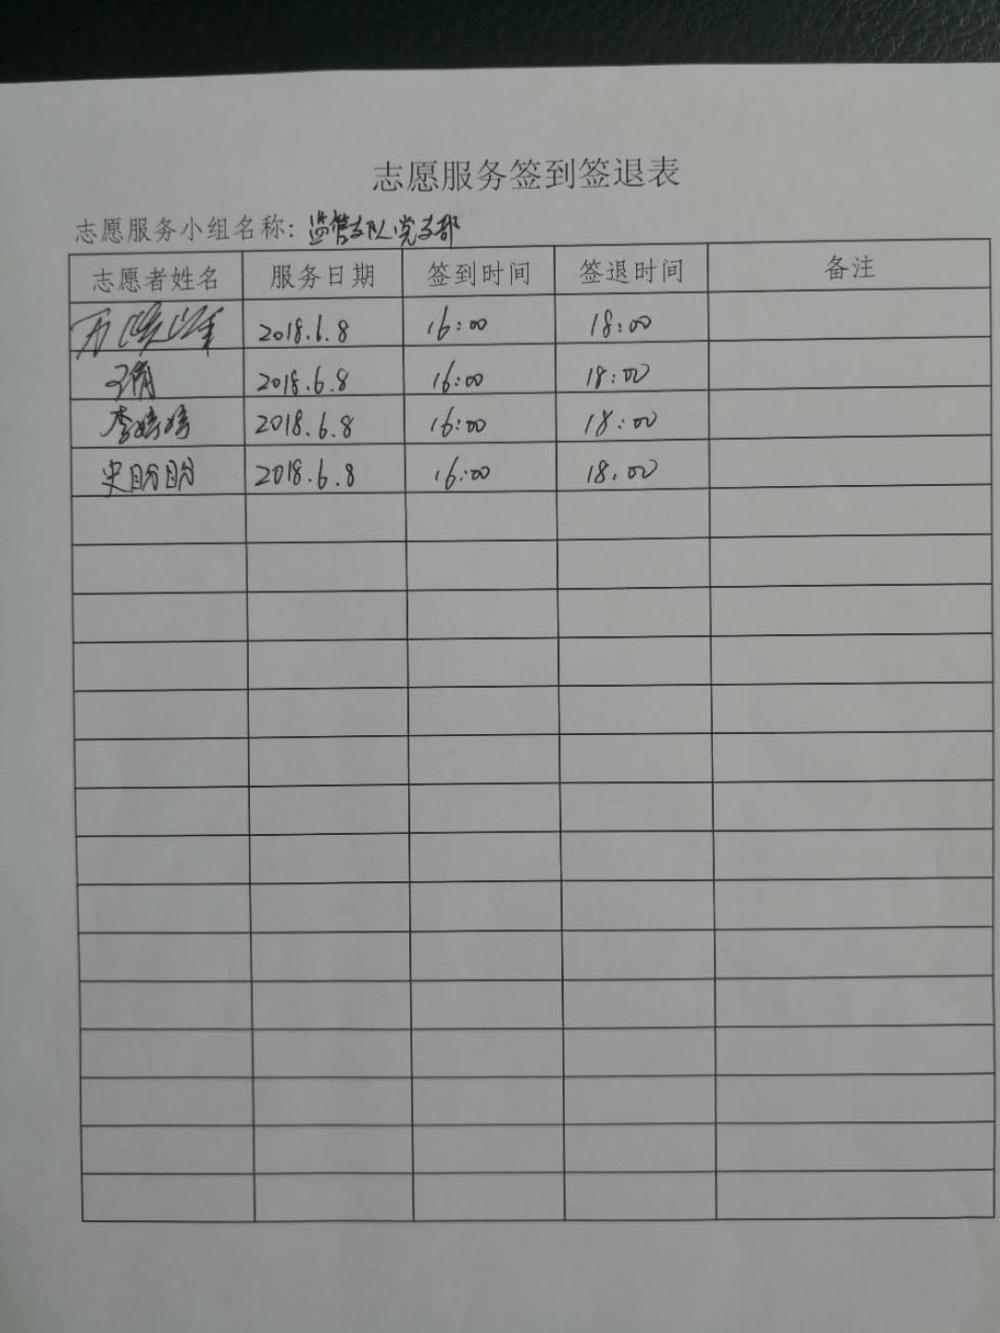 志愿服务签到签退表
志愿服务小组名称: 监管支队党支部
志愿者姓名 服务日期 签到时间 签退时间 备注
2018.6.8 16:00 18:00
2018.6.8 16:00 18:00
李婷婷 2018.6.8 16:00 18:00
史盼盼 2018.6.8 16:00 18:00